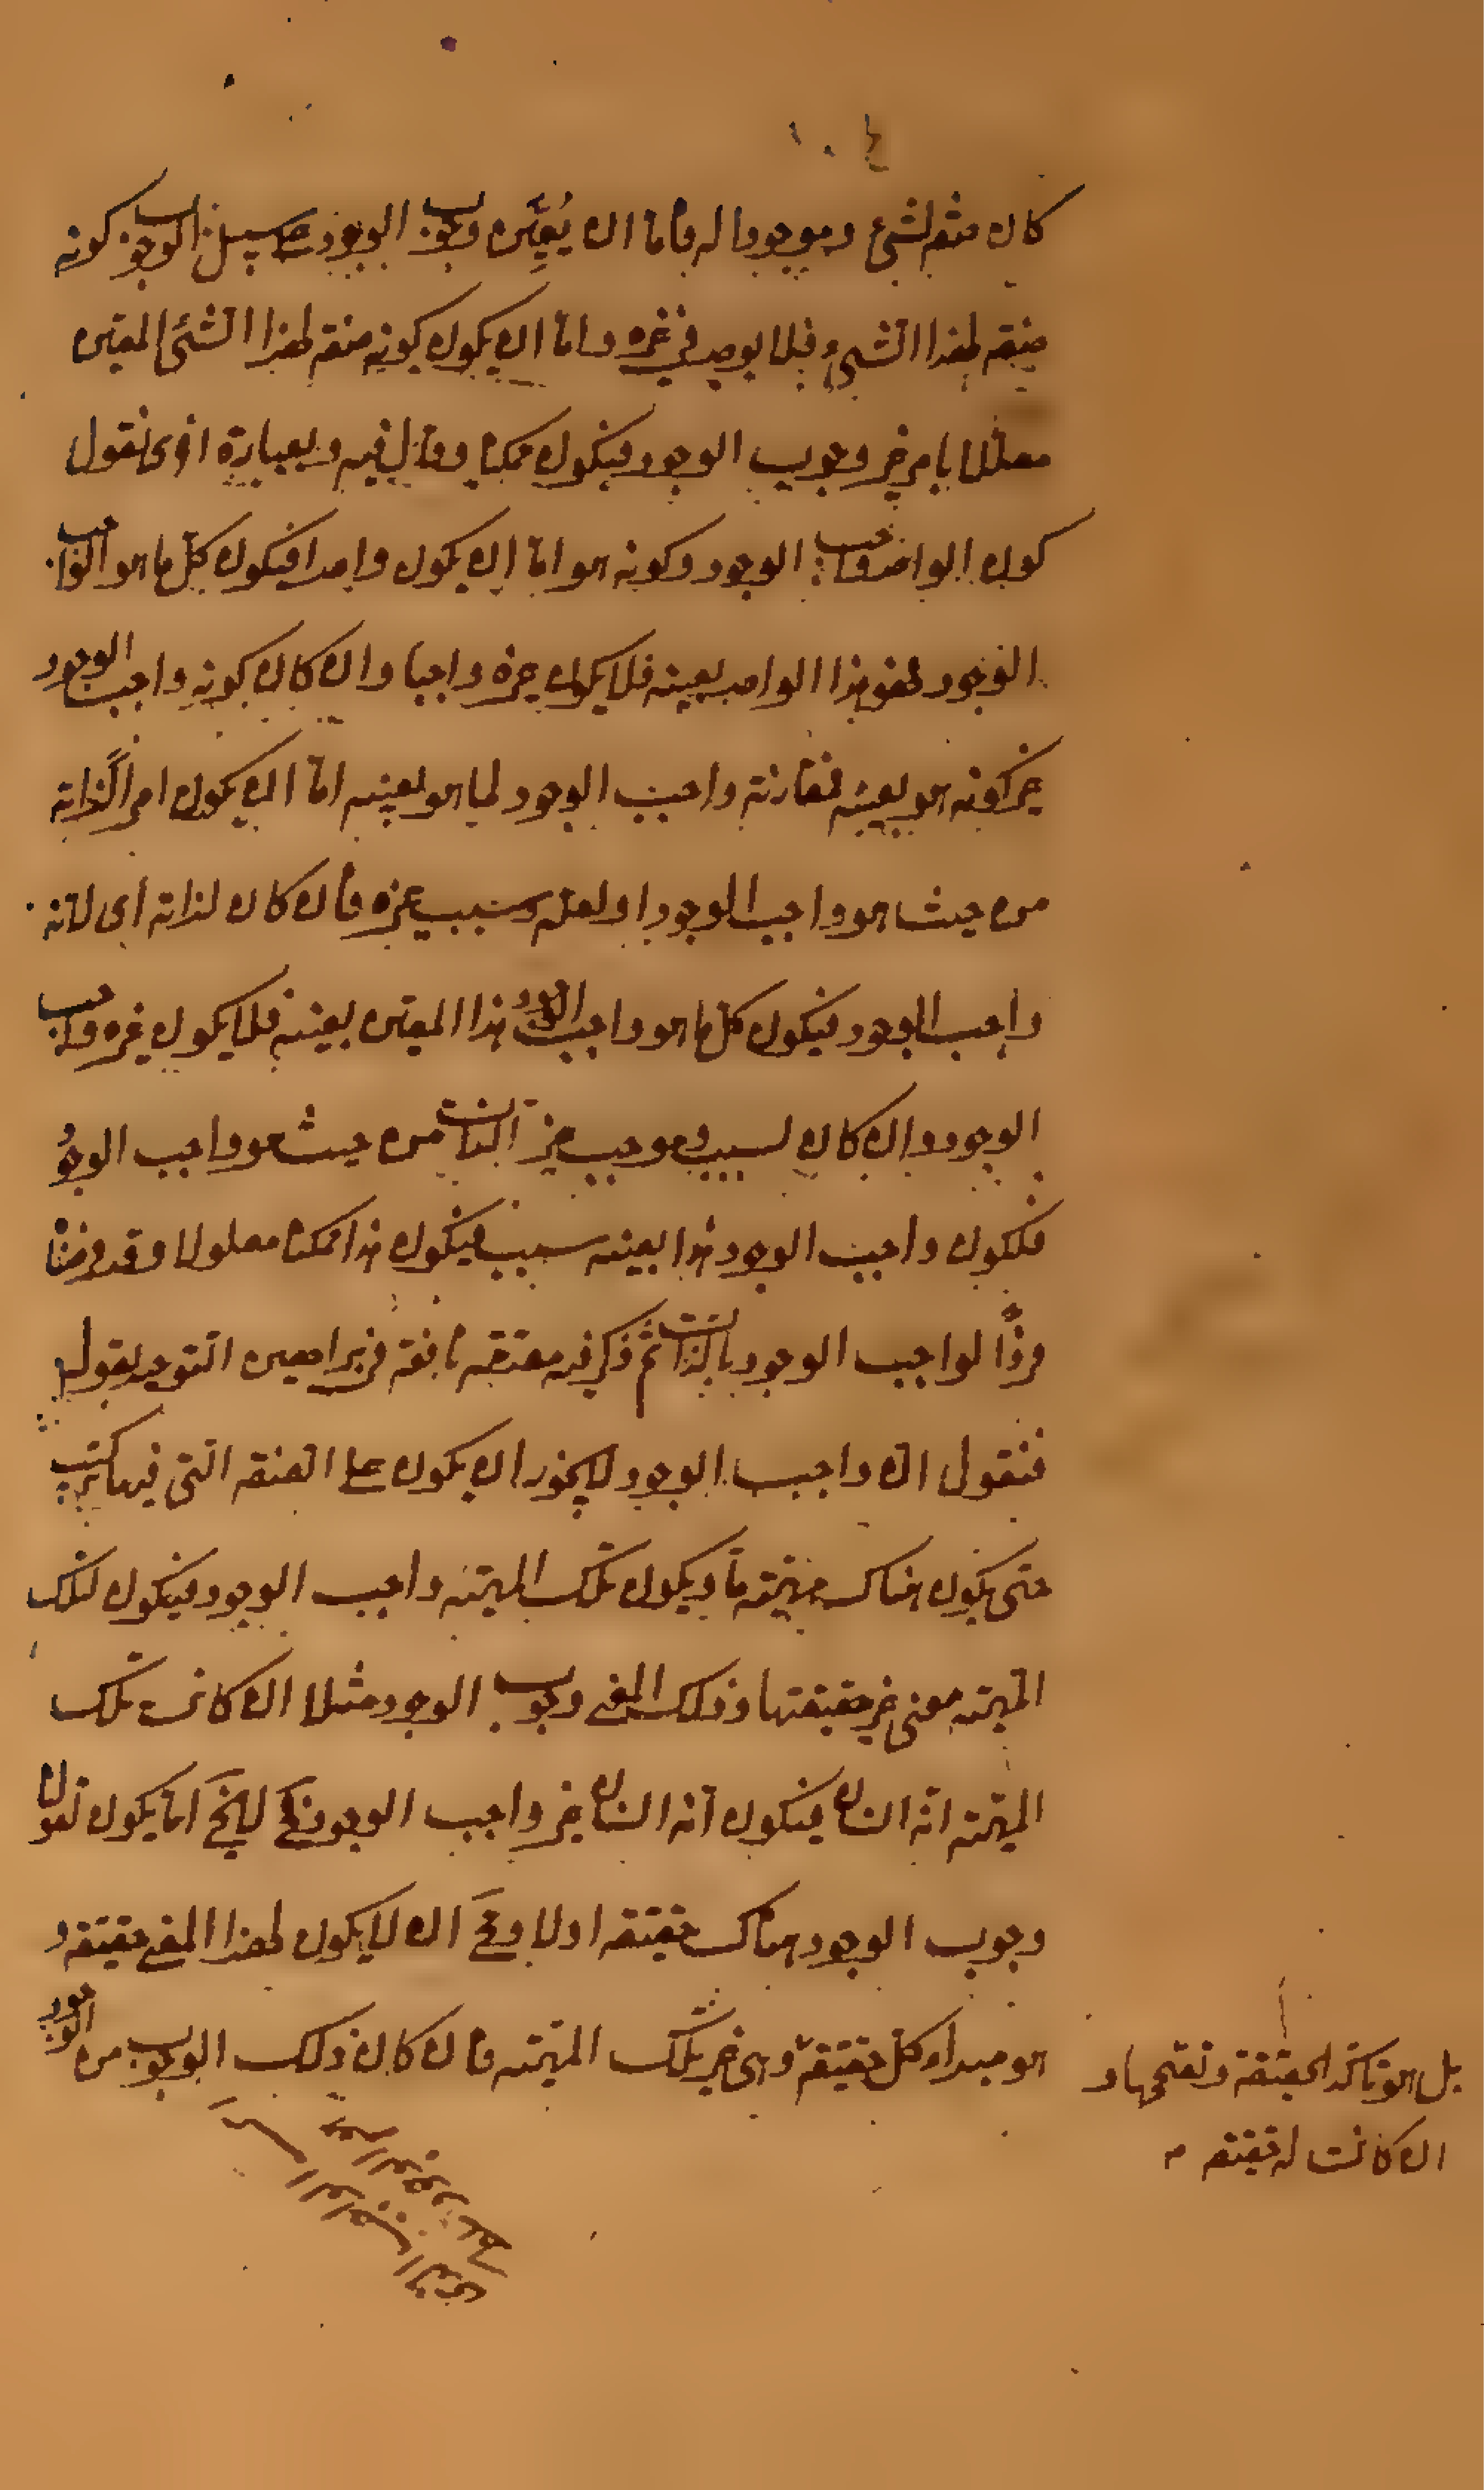 ١٠٤
كان صفة لشئ وموجودا له فاما ان يعيّن وجوب الوجود على سبيل الوجوب كونه
صفة لهذا الشئ فلا يوجد في غيره واما ان يكون كونه صفة لهذا الشئ المعيّن
معللا بامر غير وجوب الوجود فيكون ممكنا وقائل فيه وبعبارة اخرى نقول
كون الواحد واجب الوجود وكونه هو اما ان يكون واحدا فيكون كل ما هو الواجب
الوجود فهو هذا الواحد بعينه فلا يكون غيره واجبا وان كان كونه واجب الوجود
غير كونه هو بعينه فمقارنة واجب الوجود لما هو بعينه امّا ان يكون امراً لذاته
من حيث هو واجب الوجود او لعلة وسبب غيره فان كان لذاته اى لانه
واجب الوجود فيكون كل ما هو واجب الوجود هذا المعيّن بعينه فلا يكون غيره واجب
الوجود وان كان لسبب وموجب غير الذات من حيث هو واجب الوجود
فلكون واجب الوجود هذا بعينه سبب فيكون هذا ممكنا معلولا وقد فرضنا
فرداً لواجب الوجود بالذات ثم ذكر فيه مقدمة نافعة في براهين التوحيد بقوله
فنقول ان واجب الوجود لا يجوز ان يكون على الصفة التى فيها تركيب
حتى يكون هناك مهيّة ما ويكون تلك المهيّة واجب الوجود فيكون لتلك
المهيّة معنى غير حقيقتها وذلك المعنى وجوب الوجود مثلا ان كانت تلك
المهيّة انّه انسان فيكون انّه انسان غير واجب الوجود فح لا يخ امّا يكون لقولنا
وجوب الوجود هناك حقيقة اولا ومح ان لا يكون لهذا المعنى حقيقة و
هو مبدأ كل حقيقة وهى غير تلك المهيّة فان كان ذلك الوجوب من الوجود
بل هو تاكّد الحقيقة وتصحيحها و
ان كانت له حقيقة